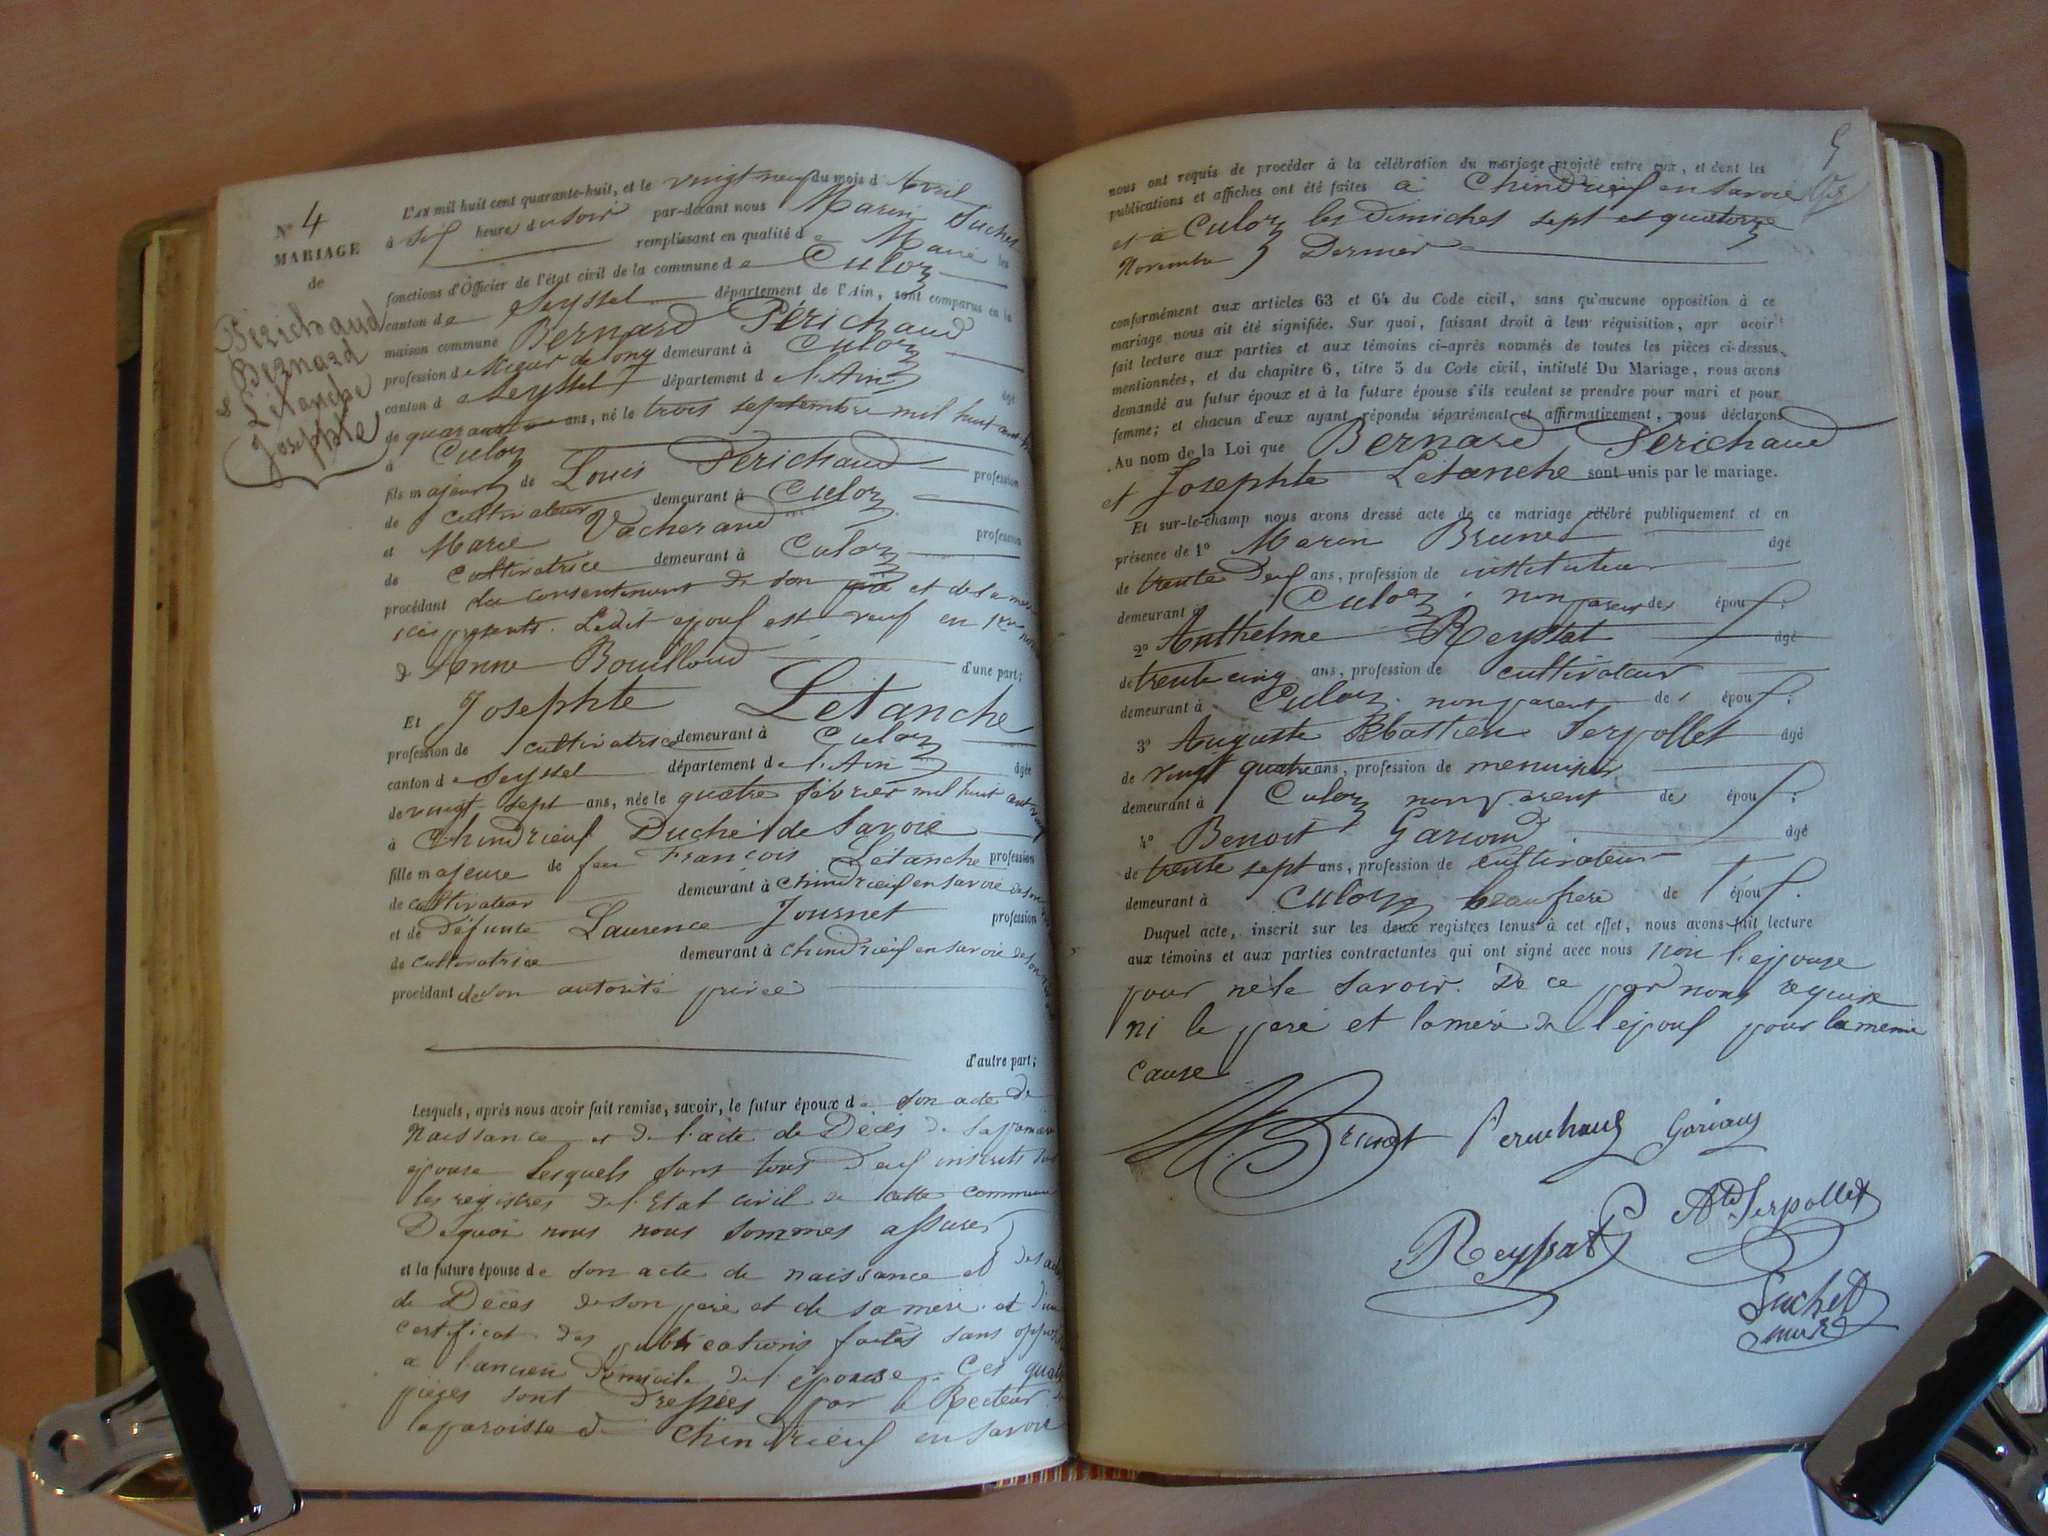 N° 4
MARIAGE
de
Périchaud
Bernard
& Létanche
Josephte
L'AN mil huit cent quarante-huit, et le vingt neuf du mois d'Avril
à heure du soir par-devant nous Marin Suchet
remplissant en qualité de Maire les
fonctions d'Officier de l'état civil de la commune de Culoz
canton de Seyssel département de l'Ain, sont comparus en la
maison commune Bernard Périchaud
profession de demeurant à Culoz
canton de Seyssel département de l'Ain âgé
de quarante ans, né le trois septembre mil huit cent
à Culoz
fils majeur de Louis Périchaud profession
de cultivateur demeurant à Culoz
et Marie Vacherand profession
de Cultivatrice demeurant à Culoz
procédant du consentement de son père et de sa mère
ici présents. Ledit epoux est veuf en
d Anne Bouilloud d'une part;
Et Josephte Létanche
profession de cultivatrice demeurant à Culoz
canton de Seyssel département de l'Ain âgée
de vingt-sept ans, née le quatre février mil huit cent vingt
à Chindrieux Duché de Savoie
fille majeure de feu François Létanche profession
de cultivateur demeurant à Chindrieux en Savoie de son
et de défunte Laurence Journet profession
de cultivatrice demeurant à Chindrieux en Savoie de son
procédant de son autorité privée
d'autre part;
Lesquels, après nous avoir fait remise, savoir, le futur époux de son acte de
Naissance et de l'acte de Décès de sa première
épouse lesquels sont tous deux inscrits sur
les registres de l'Etat civil de cette commune
De quoi nous nous sommes assurés
et la future épouse de son acte de naissance et des actes
de Décès de son père et de sa mère et d'un
certificat des publications faites sans
a l'ancien Domicile de l'épouse. Ces quatre
pièces sont dressées par le Recteur de
la paroisse de Chindrieux en Savoie
5
nous ont requis de procéder à la célébration du mariage projeté entre eux, et dont les
publications et affiches ont été faites à Chindrieux en Savoie
et à Culoz les Dimiches sept et quatorze
Novembre Dernier
conformément aux articles 63 et 64 du Code civil, sans qu'aucune opposition à ce
mariage nous ait été signifiée. Sur quoi, faisant droit à leur réquisition, apr avoir
fait lecture aux parties et aux témoins ci-après nommés de toutes les pièces ci-dessus
mentionnées, et du chapitre 6, titre 5 du Code civil, intitulé Du Mariage, nous avons
demandé au futur époux et à la future épouse s'ils veulent se prendre pour mari et pour
femme; et chacun d'eux ayant répondu séparément et affirmativement, nous déclarons
Au nom de la Loi que Bernard Périchaud
et Josephte Letanche sont unis par le mariage.
Et sur-le-champ nous avons dressé acte de ce mariage célébré publiquement et en
présence de 1° Marin Brunet âgé
de trente deux ans, profession de instituteur
demeurant à Culoz, non parent des époux;
2° Anthelme Reyssat âgé
de trente cinq ans, profession de cultivateur
demeurant à Culoz. non parent des époux;
3° Auguste Sébastien Serpollet âgé
de vingt quatre ans, profession de menuisier
demeurant à Culoz non parent des époux;
4° Benoit Garioud âgé
de trente sept ans, profession de cultivateur
demeurant à Culoz beaufrere de l'époux.
Duquel acte, inscrit sur les deux registres tenus à cet effet, nous avons fait lecture
aux témoins et aux parties contractantes qui ont signé avec nous non l'epouse
pour ne le savoir. De ce par nous requise
ni le père et la mère de l'epoux pour la meme
cause
M Brunet Perichaud Gariaud
Reyssat Ate Serpollet
Suchet
maire